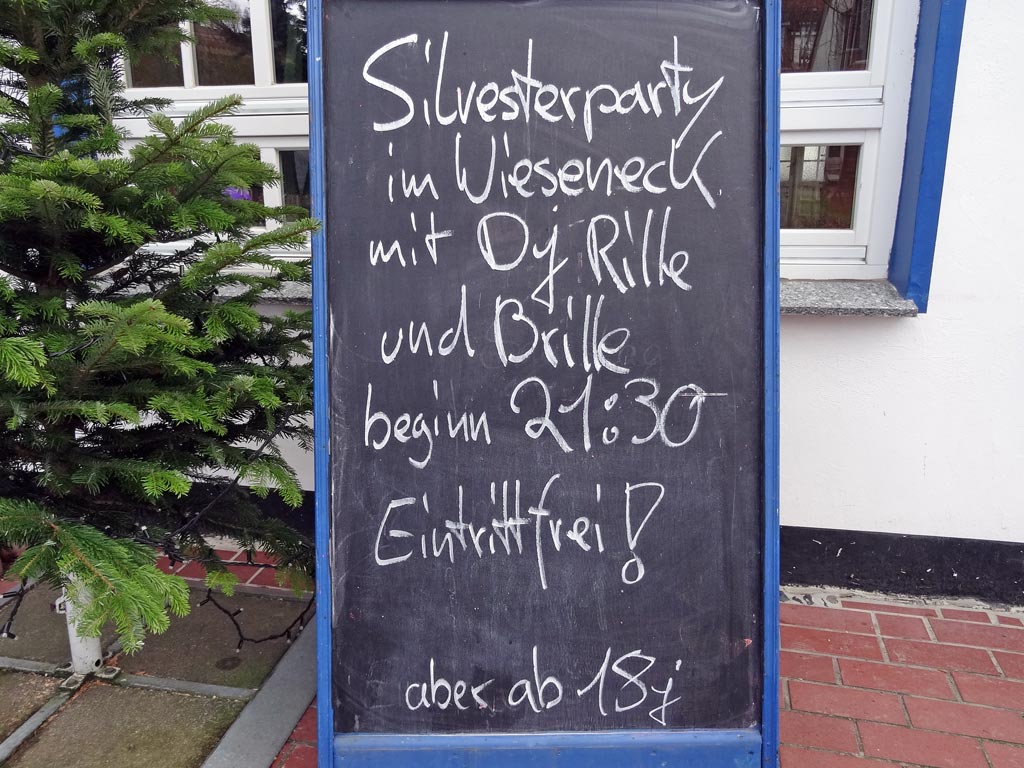 Silvesterparty
im Wieseneck.
mit Dj Rille
und Brille
beginn 21:30
Eintrittfrei!
aber ab 18j